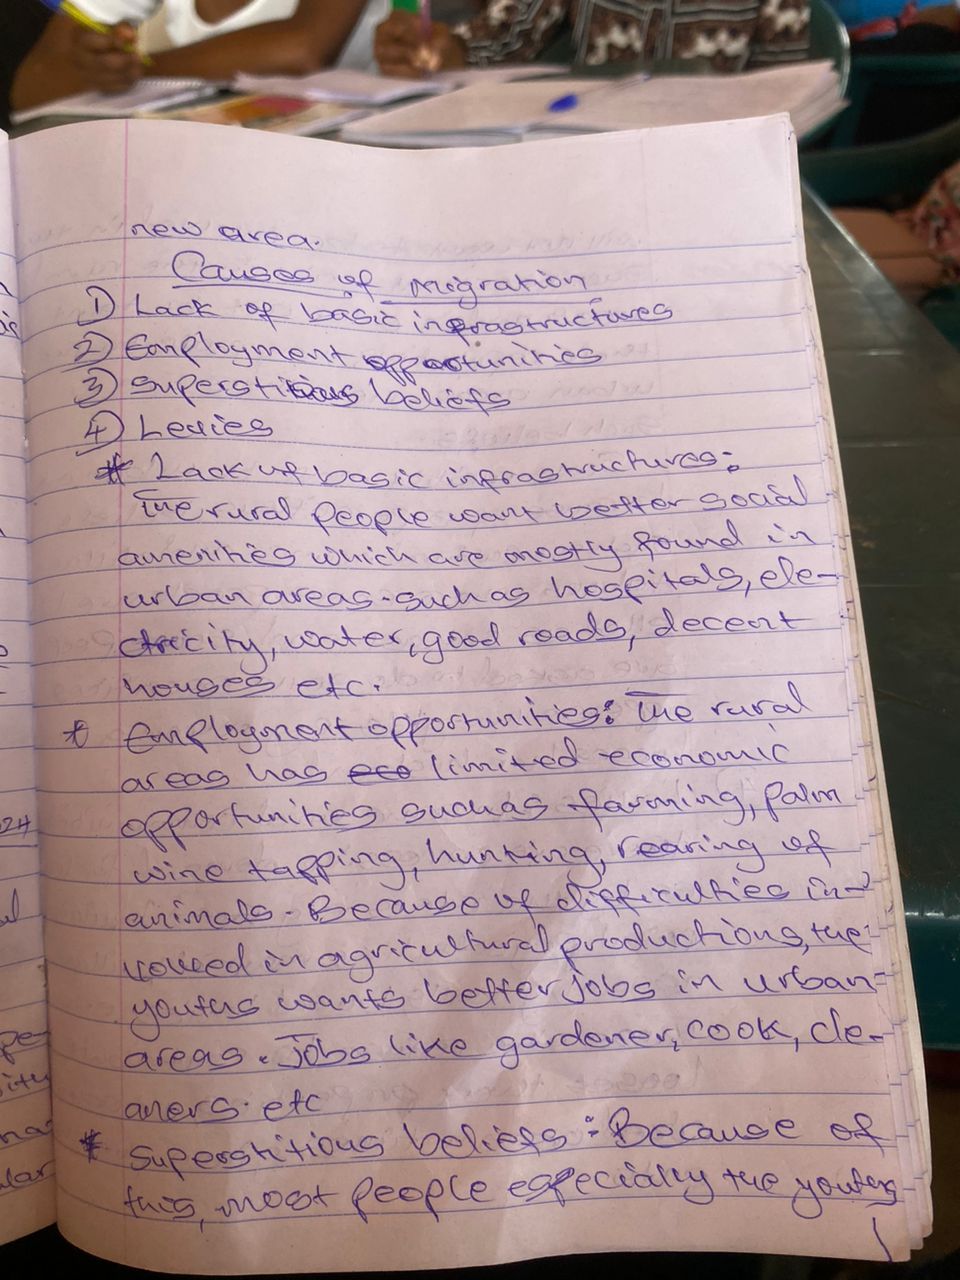 new area.
Causes of migration
1) Lack of basic infrastructures
2) Employment opportunities
3) Superstitious beliefs
4) Levies
* Lack of basic infrastructures:
The rural people want better social
amenities which are mostly found in
urban areas. such as hospitals, ele-
ctricity, water, good roads, decent
houses etc.
* Employment opportunities: The rural
areas has eco limited economic
opportunities such as farming, palm
wine tapping, hunting, rearing of
animals. Because of difficulties in-
voloed in agricultural productions, the
youths wants better jobs in urban
areas. Jobs like gardener, cook, cle-
aners. etc
* Superstitious beliefs: Because of
this, most people especially the youths